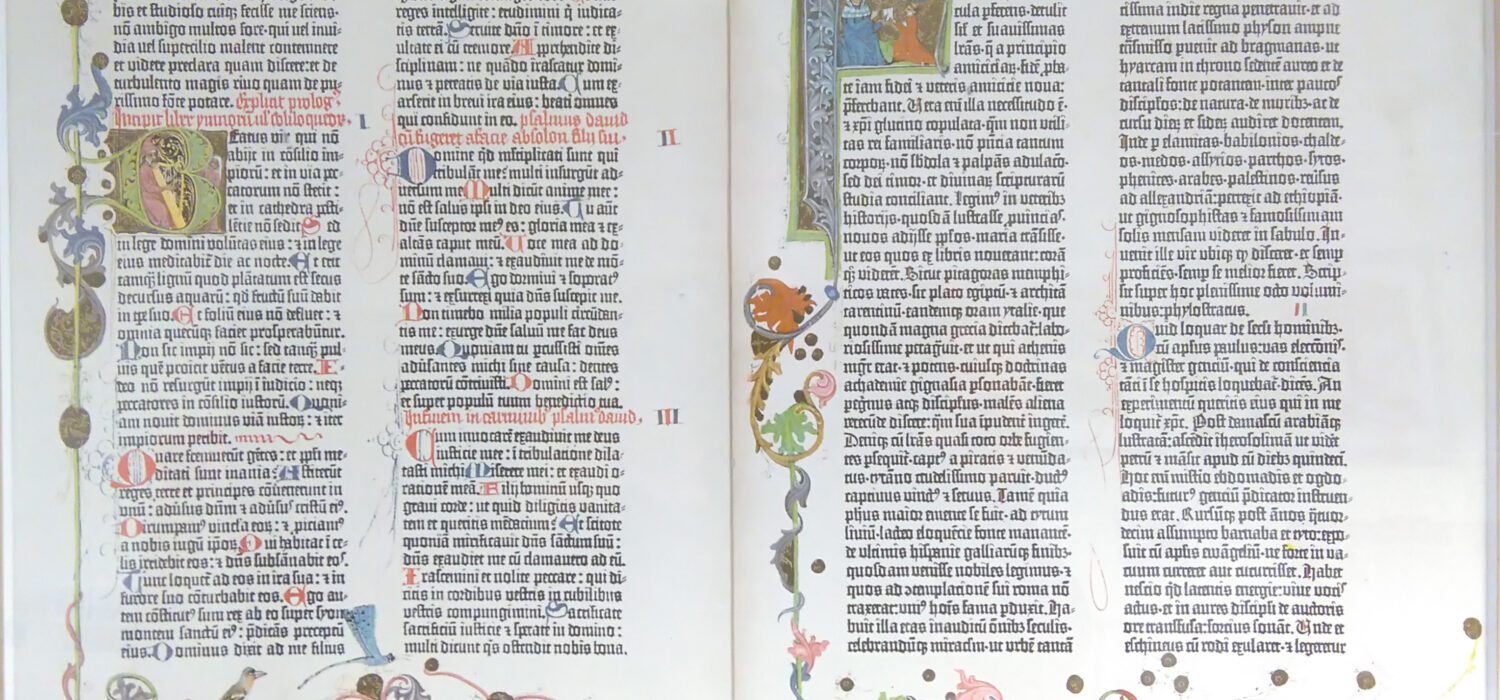 bis et studioso cuiq; fecisse me sciens·
nō ambigo multos fore·qui vel invi-
dia vel supercilio malent contemnere
et videre preclara quam discere:et de
turbulento magis rivo quam de pu-
rissimo fōte potare. Explicit prolog⁹
Incipit liber ymnorū vel soliloquiorū
I
Beatus vir qui nō
abijt in cōsilio im-
piorū: et in via pec-
catorum nō stetit:
et in cathedra pesti-
lētie nō sedit. Sed
in lege domini volūtas eius: ⁊ in lege
eius meditabiť die ac nocte. Et erit
tamq̄ lignū quod plātatum est secus
decursus aquarū: qd fructū suū dabit
in tp̄e suo. Et foliū eius nō defluet: ⁊
omnia quecūq; faciet prosperabūtur.
Non sic impij nō sic: sed tanq̄ pul-
vis quē proicit vētus a facie terre. I-
deo nō resurgūt impij ī iudicio: neq;
peccatores in cōsilio iustorū. Quoni-
am novit dominus viā iustoꝝ: ⁊ iter
impiorum peribit.
Quare fremuerūt gētes: et ppli me-
ditati sunt inania: Astiterūt
reges terre et principes cōvenerunt in
vnū: advsus dn̄m ⁊ adversꝰ cristū eiꝰ.
Dirumpamꝰ vincla eoꝝ: ⁊ piciamꝰ
a nobis iugū ipoꝝ. Qui habitat ī ce-
lis irridebit eos: ⁊ dn̄s subsānabit eoſ.
Tunc loqueť ad eos in ira sua: ⁊ in
furore suo cōturbabit eos. Ego au-
tem cōstitutꝰ sum rex ab eo super syon
montem sanctū eiꝰ: p̄dicās preceptū
eius. Dominus dixit ad me filius
reges intelligite: erudimini q̄ iudica-
tis terrā. Servite dn̄o ī timore: et ex-
ultate ei cū tremore. Apprehendite di-
sciplinam: ne quādo irascatur domi-
nus ⁊ pereatis de via iusta. Cum ex-
arserit in brevi ira eius: beati omnes
qui confidunt in eo. psalmus david
cū fugeret a facie absolon filij sui.
II
Domine qd m̄tiplicati sunt qui
tribulāt me: multi insurgūt ad-
versum me. Multi dicūt anime mee:
nō est salus ipi in deo eius. Tu autē
dn̄e susceptor meꝰ es: gloria mea ⁊ ex-
altās caput meū. Voce mea ad do-
minū clamavi: ⁊ exaudivit me de mō-
te sācto suo. Ego dormivi ⁊ soporatꝰ
sum: ⁊ exsurrexi quia dn̄s suscepit me.
Non timebo milia populi circūdan-
tis me: exurge dn̄e salvū me fac deus
meus. Quoniam tu pcussisti om̄es
adūsantes michi sine causa: dentes
peccatorū cōtrivisti. Domini est salꝰ:
et super populū tuum benedictio tua.
In finem in carminibꝰ psalmꝰ david.
III
Cum invocarē exaudivit me deus
iusticie mee: ī tribulatione dila-
tasti michi. Miserere mei: et exaudi o-
rationē meā. Filij hominū usq; quo
gravi corde: ut quid diligitis vanita-
tem et queritis mēdacium? Et scitote
quoniā mirificavit dn̄s sanctum suū:
dn̄s exaudiet me cū clamavero ad eū.
Irascimini et nolite peccare: qui di-
citis in cordibus vestris in cubilibus
vestris compungimini. Sacrificate
sacrificiū iusticie ⁊ sperate in domino:
multi dicunt q̄s ostendit nobis bona.
cula pferens·detulit
sil et suavissimas
lr̄as·q̄ a principio
amiciciaꝝ·fidē pba-
te iam fidei ⁊ veteris amicicie nova:
p̄ferebant. Vera em̄ illa necessitudo ē·
⁊ xp̄i glutino copulata·q̄m non vtili-
tas rei familiaris·nō p̄ncia tantum
corpoꝝ·nō sbdola ⁊ palpās adulaco·
sed dei timor·et divinaꝝ scripturarū
studia conciliant. Legimꝰ in veterib;
historijs·quosdā lustrasse p̄uincias·
novos adijsse pplos·maria trāsisse·
ut eos quos ex libris noverant: corā
q; viderēt. Sicut pitagoras memphi-
ticos vates·sic plato egiptū·⁊ architā
tarentinū·eandemq; oram ytalie·que
quondā magna grecia dicebať: labo-
riosissime peragravit·et ut qui athenis
mgr̄ erat·⁊ potens·cuiusq; doctrinas
achademie gignasia psonabāt·fieret
pegrinus atq; discipulus·malēs aliena
verecūde discere·qm̄ sua īpudent ingerē.
Deniq; cū lr̄as quasi toto orbe fugien-
tes psequiť·captꝰ a piratis ⁊ venūda-
tus·tyrāno crudelissimo paruit·ductꝰ
captivus vinctꝰ ⁊ servus. Tamē quia
phūs maior emente se fuit·ad tytum
liviū·lacteo eloquētie fonte manantē·
de vltimis hispanie galliarūq; finib;·
quosdam venisse nobiles legimus·⁊
quos ad ꝯtemplacionē sui roma nō
traxerat·vniꝰ hoīs fama pduxit. Ha-
buit illa etas inauditū ōnib; seculis·
celebrandūq; miraclm̄·ut vrbē tantā
tissima indie regna penetravit·et ad
extremum latissimo physon ampne
trāsmisso puenit ad bragmanas·ut
hyarcam in throno sedentē aureo et de
tantali fonte potantem·inter paucos
discipulos·de natura·de morib;·ac de
cursu dieꝝ et siderū audiret docentem.
Inde p elamitas·babilonios·chalde-
os·medos·assyrios·parthos·syros·
phenices·arabes·palestinos·reūsus
ad allexandriā·perrexit ad ethiopiā·
ut gignosophistas ⁊ famosissimam
solis mensam videret in sabulo. In-
venit ille vir vbiq; qd disceret·et semp
proficiēs·semp se melior fieret. Scrip-
sit super hoc plenissime octo volumi-
nibus·phylostratus.
II
Quid loquar de secli hominib;·
cū apłus paulus·vas electionis·
⁊ magister genciū·qui de consciencia
tāti ī se hospitis loquebať·dicēs. An
experimentū queritis eius qui in me
loquiť xpc̄. Post damascū arabiāq;
lustratā·ascēdit iherosolimā ut vidēt
petrū ⁊ māsit apud eū dieb; quindeci.
Hoc em̄ mistio ebdomadis et ogdo-
adis·futurꝰ genciū p̄dicator instruen-
dus erat. Rursūq; post ānos q̄tuor-
decim assumpto barnaba et tyto·expo-
suit cū aplis evāgeliū·ne forte in va-
cuum curreret aut cucurrisset. Habet
nescio qd latentis energie·vive vocis
actus·et in aures discipli de auctoris
ore transfusa·forcius sonat. Vnde et
eschineus cū rodi exularet·⁊ legeretur